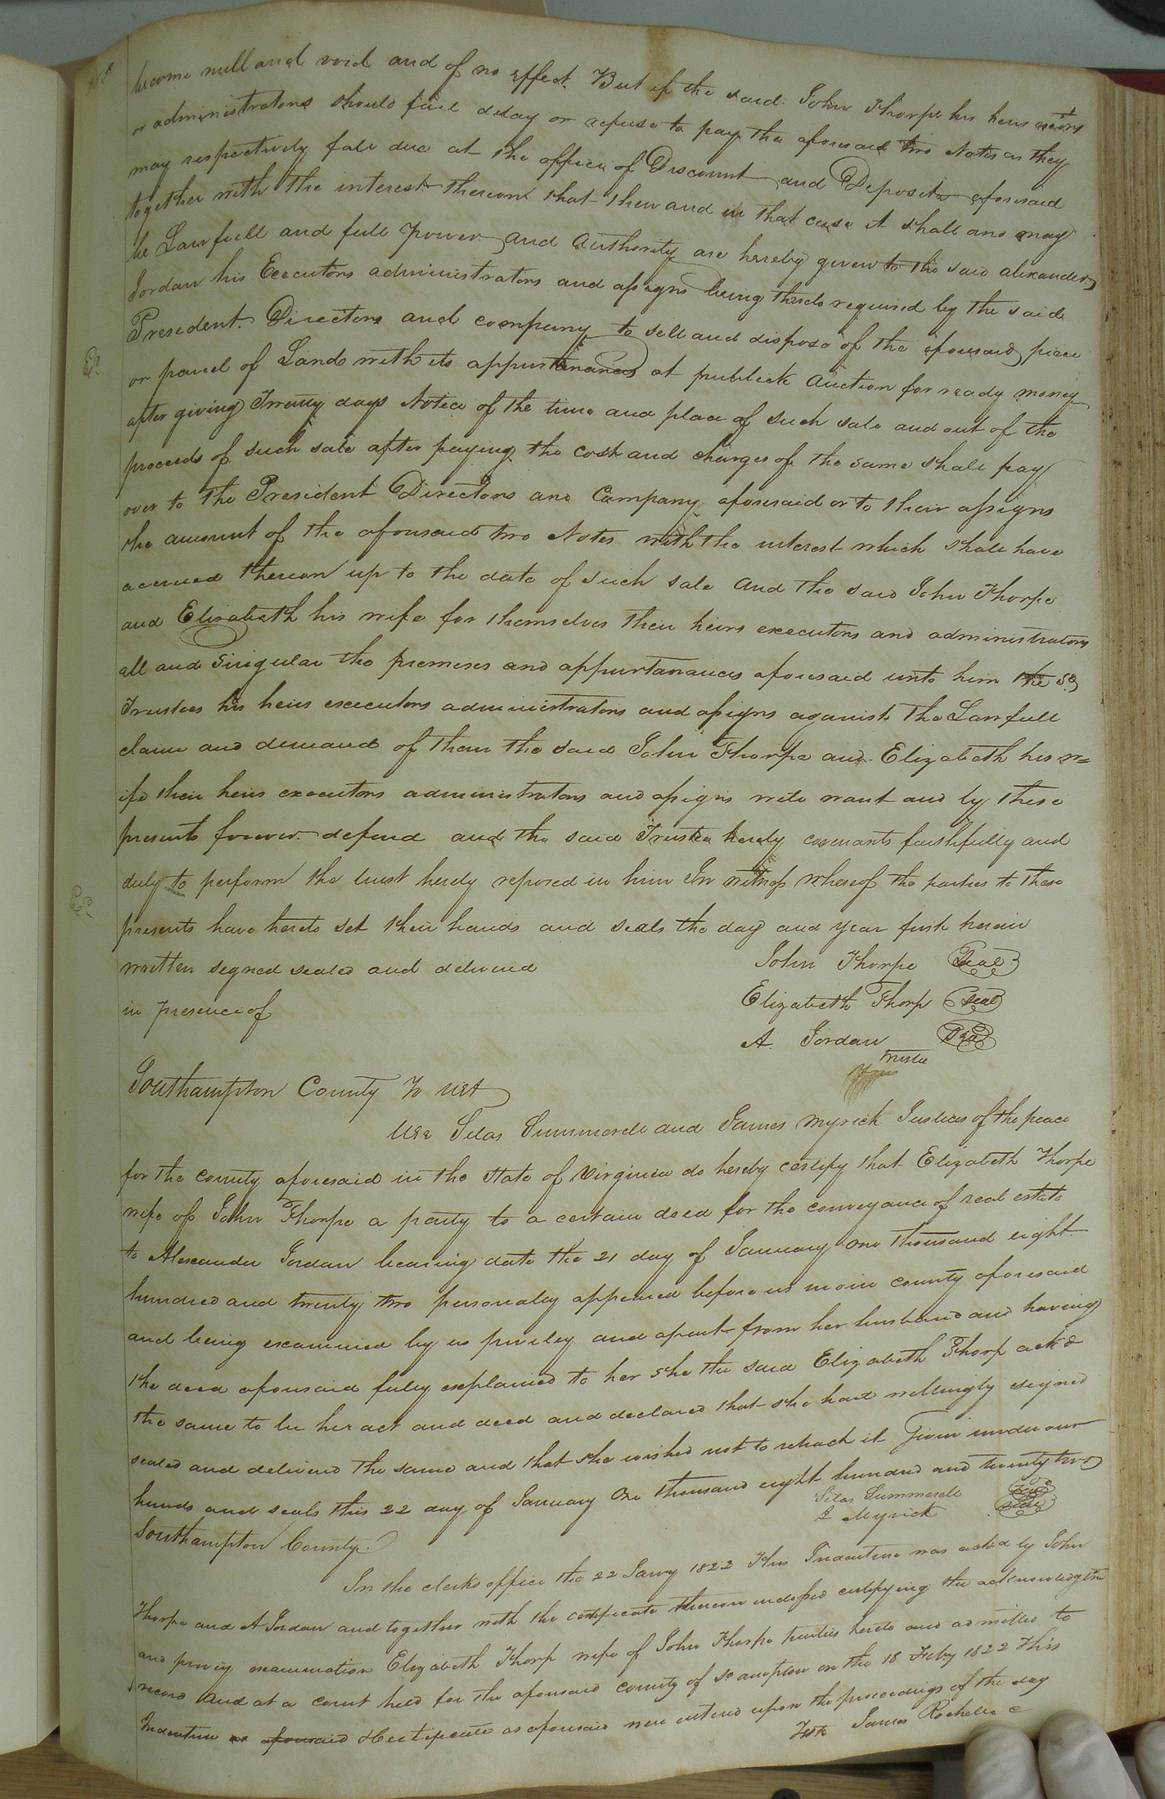 become null and void and of no effect. But if the said John Thorpe his heirs exors
or administrators should fail delay or refuse to pay the aforesaid two Notes as they
may respectively fall due at the office of Discount and Deposit aforesaid
together with the interest thereon that then and in that case it shall and may
be Lawfull and full power and authority are hereby given to the said alexander
Jordan his Executors administrators and assigns being thereto required by the said
President Directors and company to sell and dispose of the aforesaid piece
or parcel of Land with its appurtenances at publick auction for ready money
after giving Twenty days Notice of the time and place of such sale and out of the
proceeds of such sale after paying the cost and charges of the same shall pay
over to the President Directors and Company aforesaid or to their assigns
the amount of the aforesaid two Notes with the interest which shall have
accrued thereon up to the date of such sale and the said John Thorpe
and Elizabeth his wife for themselves their heirs executors and administrators
all and singular the premises and appurtanances aforesaid unto him the sd
Trustee his heirs executors administrators and assigns against the Lawfull
claim and demand of them the said John Thorpe and Elizabeth his w=
ife their heirs executors administrators and assigns will warant and by these
presents forever defend and the said Trustee hereby covenants faithfully and
duly to perform the trust hereby reposed in him In witness whereof the parties to these
presents have hereto set their hands and seals the day and year first herein
written signed sealed and delivered John Thorpe Seal
in presence of Elizabeth Thorp seal
A. Jordan Seal
Trustee
Southampton County To wit
We Silas Summerell and James Myrick Justices of the peace
for the county aforesaid in the State of Virginia do hereby certify that Elizabeth Thorpe
wife of John Thorpe a party to a certain deed for the conveyance of real estate
to Alexander Jordan bearing date the 21 day of January one thousand eight
hundred and twenty two personally appeared before us in our county aforesaid
and being examined by us privily and apart from her husband and having
the deed aforesaid fully explained to her she the said Elizabeth Thorp ackd
the same to be her act and deed and declared that she had willingly signed
sealed and delivered the same and that she wished not to retract it Given under our
hands and seals this 22 day of January One thousand eight hundred and twenty two
Silas Summerell seal
J Myrick seal
Southampton County.
In the clerks office the 22 Jany 1822 This Indenture was ackd by John
Thorpe and A Jordan and together with the certificate thereon endorsed certifying the acknowledgmt
and privy examination Elizabeth Thorp wife of John Thorpe parties hereto and admitted to
record and at a court held for the aforesaid county of So ampton on the 18 Feby 1822 This
Indenture & Certificate as aforesaid were entered upon the proceedings of the day
Teste James Rochelle c